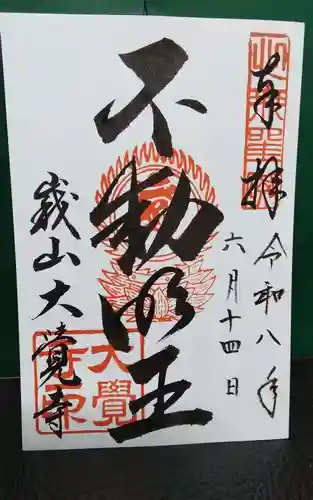 奉拝
令和八年
六月十四日
不動明王
嵯山大覺寺
大覺
寺印